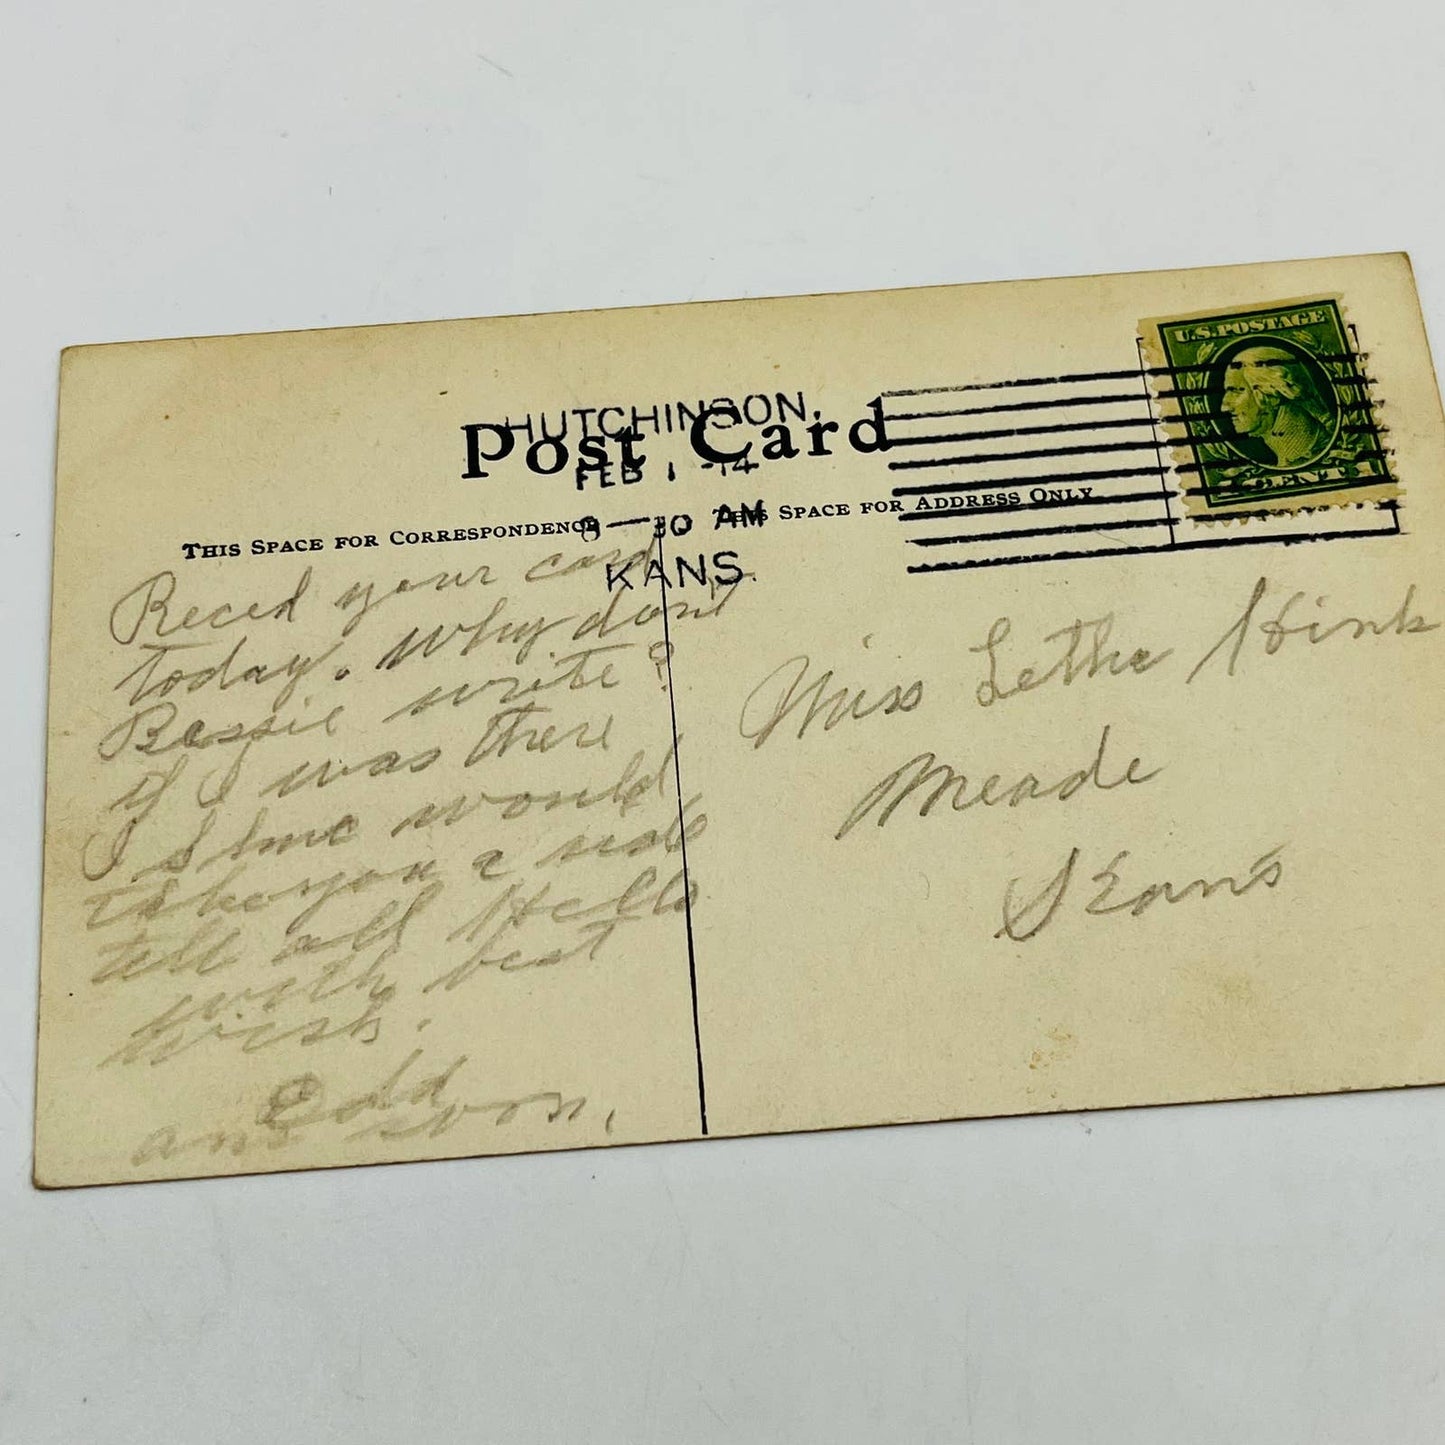 U.S. POSTAGE
HUTCHINSON,
Post Card
FEB 1 -14
THIS SPACE FOR CORRESPONDENCE
THIS SPACE FOR ADDRESS ONLY
8 — 30 AM
KANS.
Reced your card
today. Why dont
Bessie write?
if I was there
I would
take you a ride
tell all Hello
with best
wish.
ans soon.
Miss Letha Hink
Meade
Kans